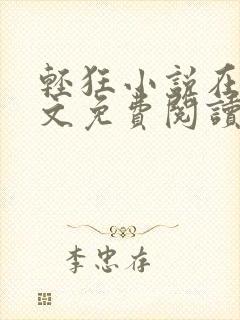 輕狂小說在
文免費閱讀
李忠存